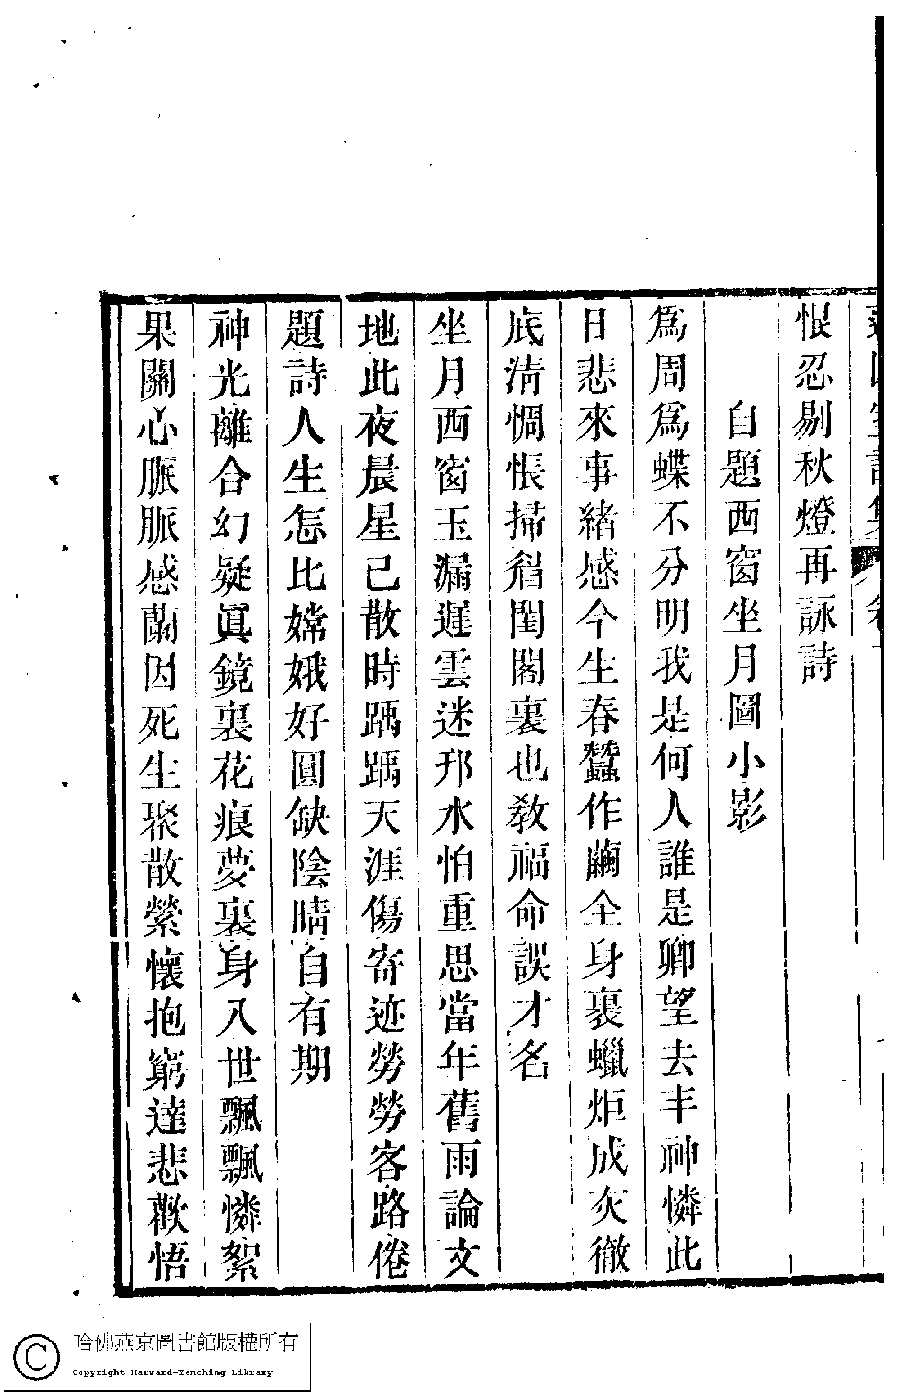 恨忍剔秋燈再詠詩
自題西窗坐月圖小影
爲周爲蝶不分明我是何人誰是卿望去丰神憐此
日悲來事緒感今生春蠶作繭全身裹蠟炬成灰徹
底淸惆悵掃眉閨閣裏也敎福命誤才名
坐月西窗玉漏遲雲迷邗水怕重思當年舊雨論文
地此夜晨星已散時踽踽天涯傷寄迹勞勞客路倦
題詩人生怎比嫦娥好圓缺陰晴自有期
神光離合幻疑眞鏡裏花痕夢裏身入世飄飄憐絮
果關心脈脈感蘭因死生聚散縈懷抱窮達悲歡悟
哈佛燕京圖書館版權所有
Copyright Harvard-Yenching Library